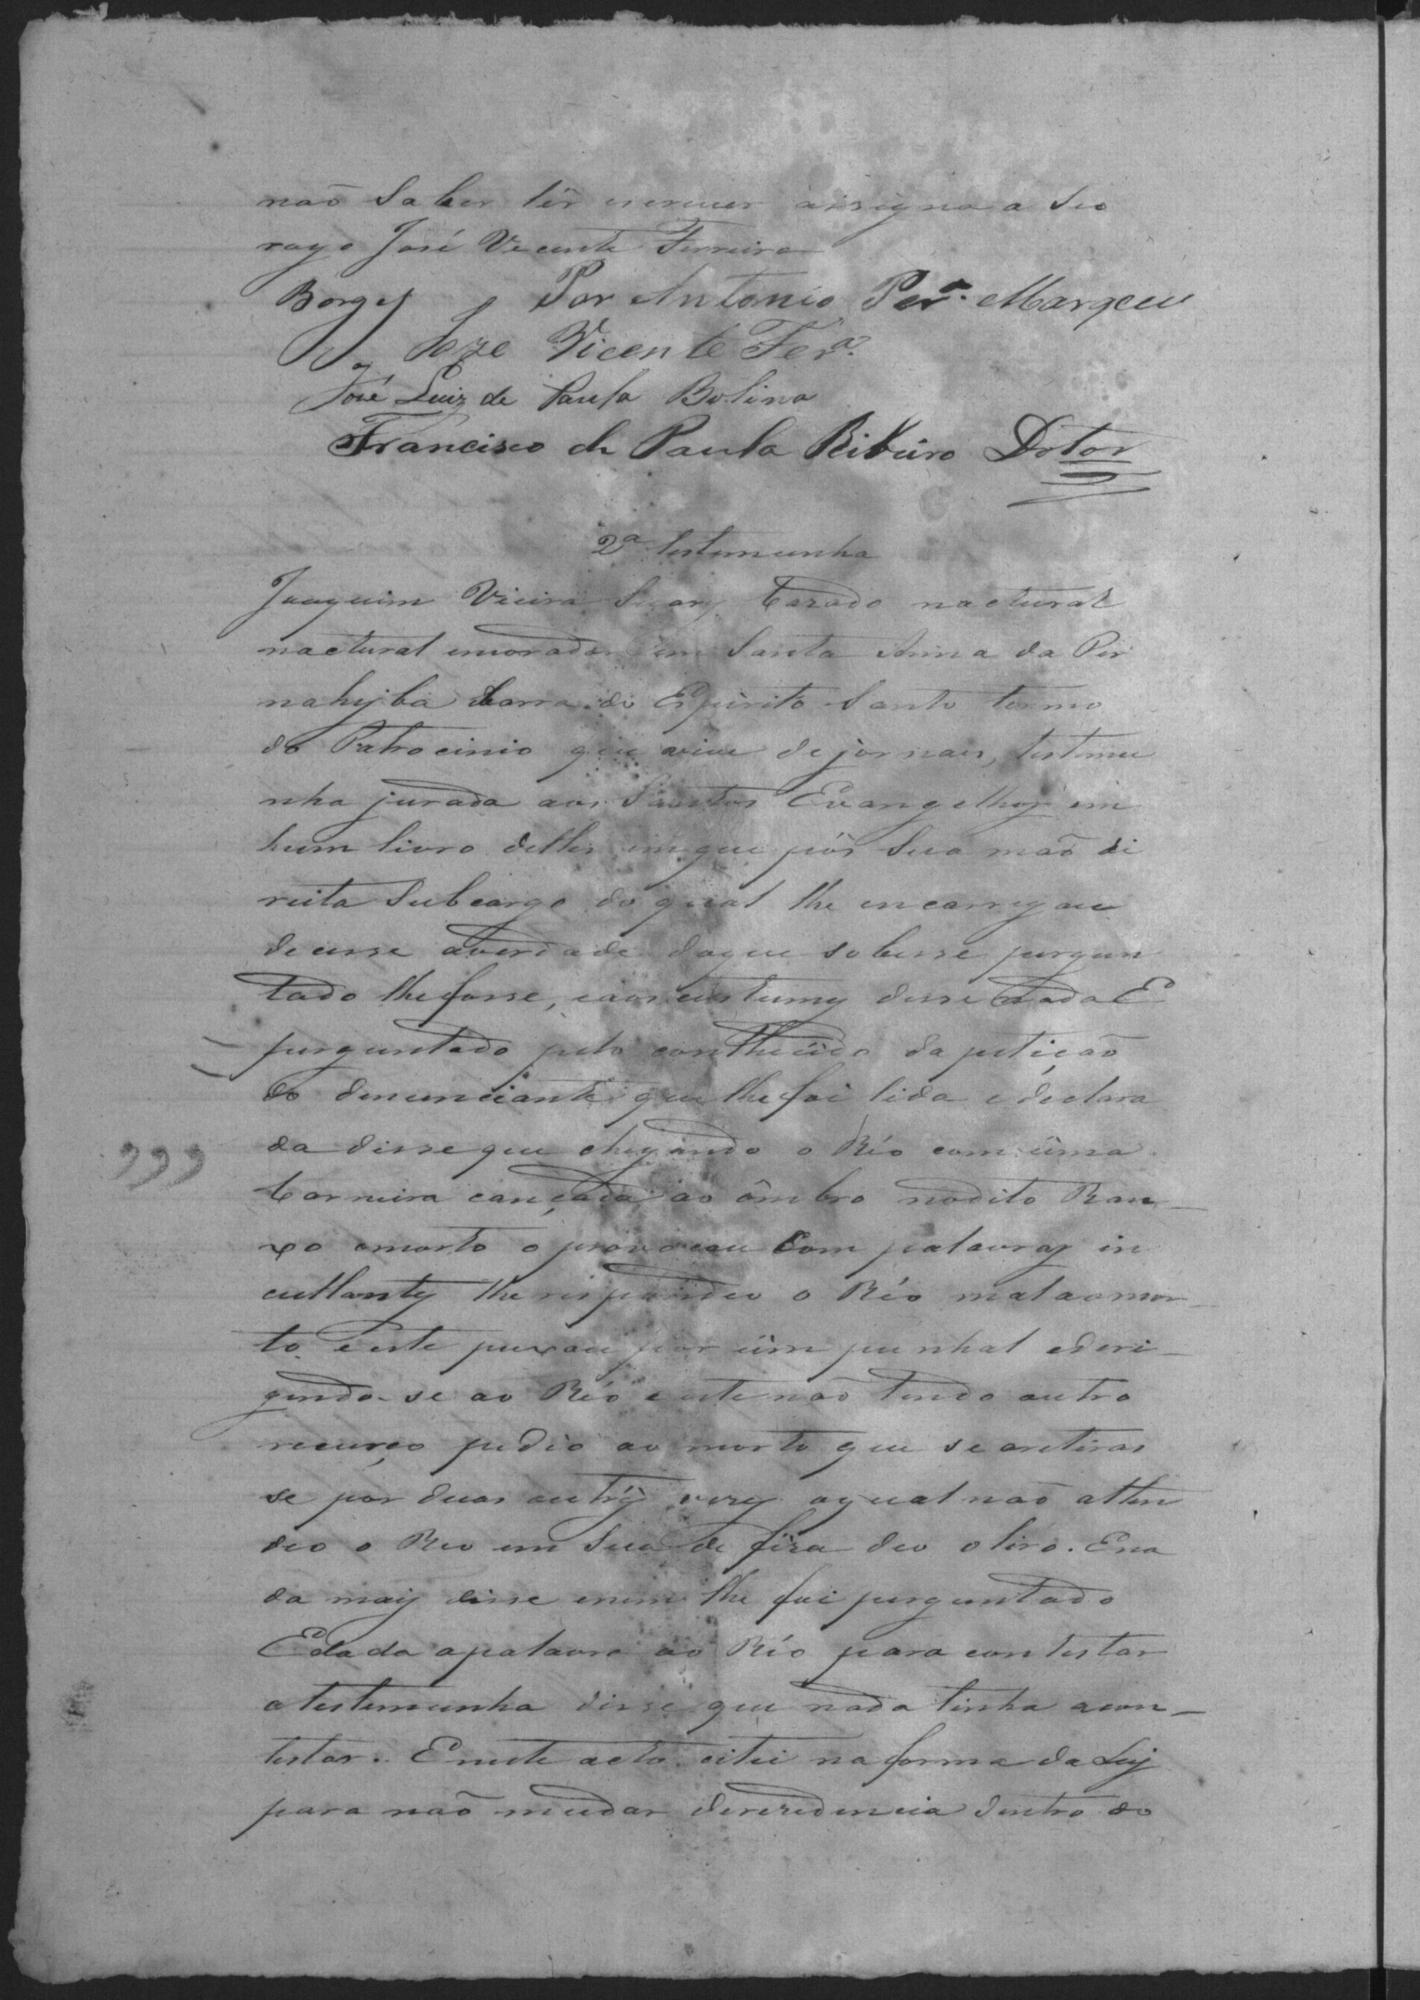 não saber lêr escrever assigna a seo
rogo José Vecente Ferreira
Borges Por Antonio Perª. Marqeu
Joze Vicente Ferª.
José Luiz de Paula Bolina
Francisco de Paula Ribeiro Dotor
2ª testemunha
Joaquim Vieira Cazado nactural
nactural emorador em Santa Anna da Par
nahyba barra do Espirito Santo termo
do Patrocinio que vive de jornais, testemu
nha jurada aos Santos Evangelhos em
hum livro delles emque pôs sua mão di
reita subcargo do qual lhe encarregou
decesse averdade doque sobesse pergun
tado lhefosse, eaos custumes disse nada E
perguntado pelo contheúdo da petição
do denunciante que lhefoi lida edeclara
da disse que chegando o Réo com úma
Carneira cançada ao ômbro nodito Ran
xo omorto o provocou com palavras in
cultantes lhe respondeo o Réo mal aomor
to. Eeste puxou por úm punhal ederi
gindo-se ao Réo eeste não tendo outro
recurço pedio ao morto que se aretiras
se por duas outrês vezes aqual não atten
deo o Reo em sua defêza deo o tiro. Ena
da mais disse enem lhe foi perguntado
Edada apalavra ao Réo para contestar
atestemunha disse que nada tinha acon
testar. Eneste acto citei na forma da Lei
para não mudar derezidencia dentro do